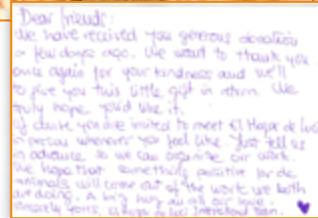 Dear friends:
We have received your generous donation
a few days ago. We want to thank you
once again for your kindness and we'll
to give you this little gift in return. We
truly hope you'd like it.
Of course you are invited to meet El Hogar de Luci
in person whenever you feel like. Just tell us
in advance so we can organise our work.
We hope that something positive for de
animals will come out of the work we both
are doing. A big hug and all our love.
Sincerely yours, El Hogar de Luci